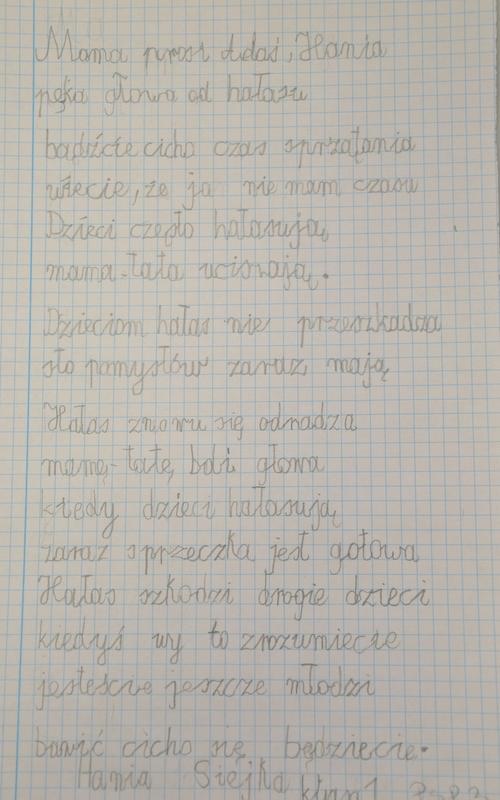 Mama prosi Adaś, Hania
pęka głowa od hałasu
bądźcie cicho czas sprzątania
wiecie, że ja nie mam czasu
Dzieci często hałasują,
mama-tata uciszają.
Dzieciom hałas nie przeszkadza
sto pomysłów zaraz mają
Hałas znowu się odradza
mamę-tatę, boli głowa
kiedy dzieci hałasują
zaraz sprzeczka jest gotowa
Hałas szkodzi drogie dzieci
kiedyś wy to zrozumiecie
jesteście jeszcze młodzi
bawić cicho się będziecie.
Hania Siejka